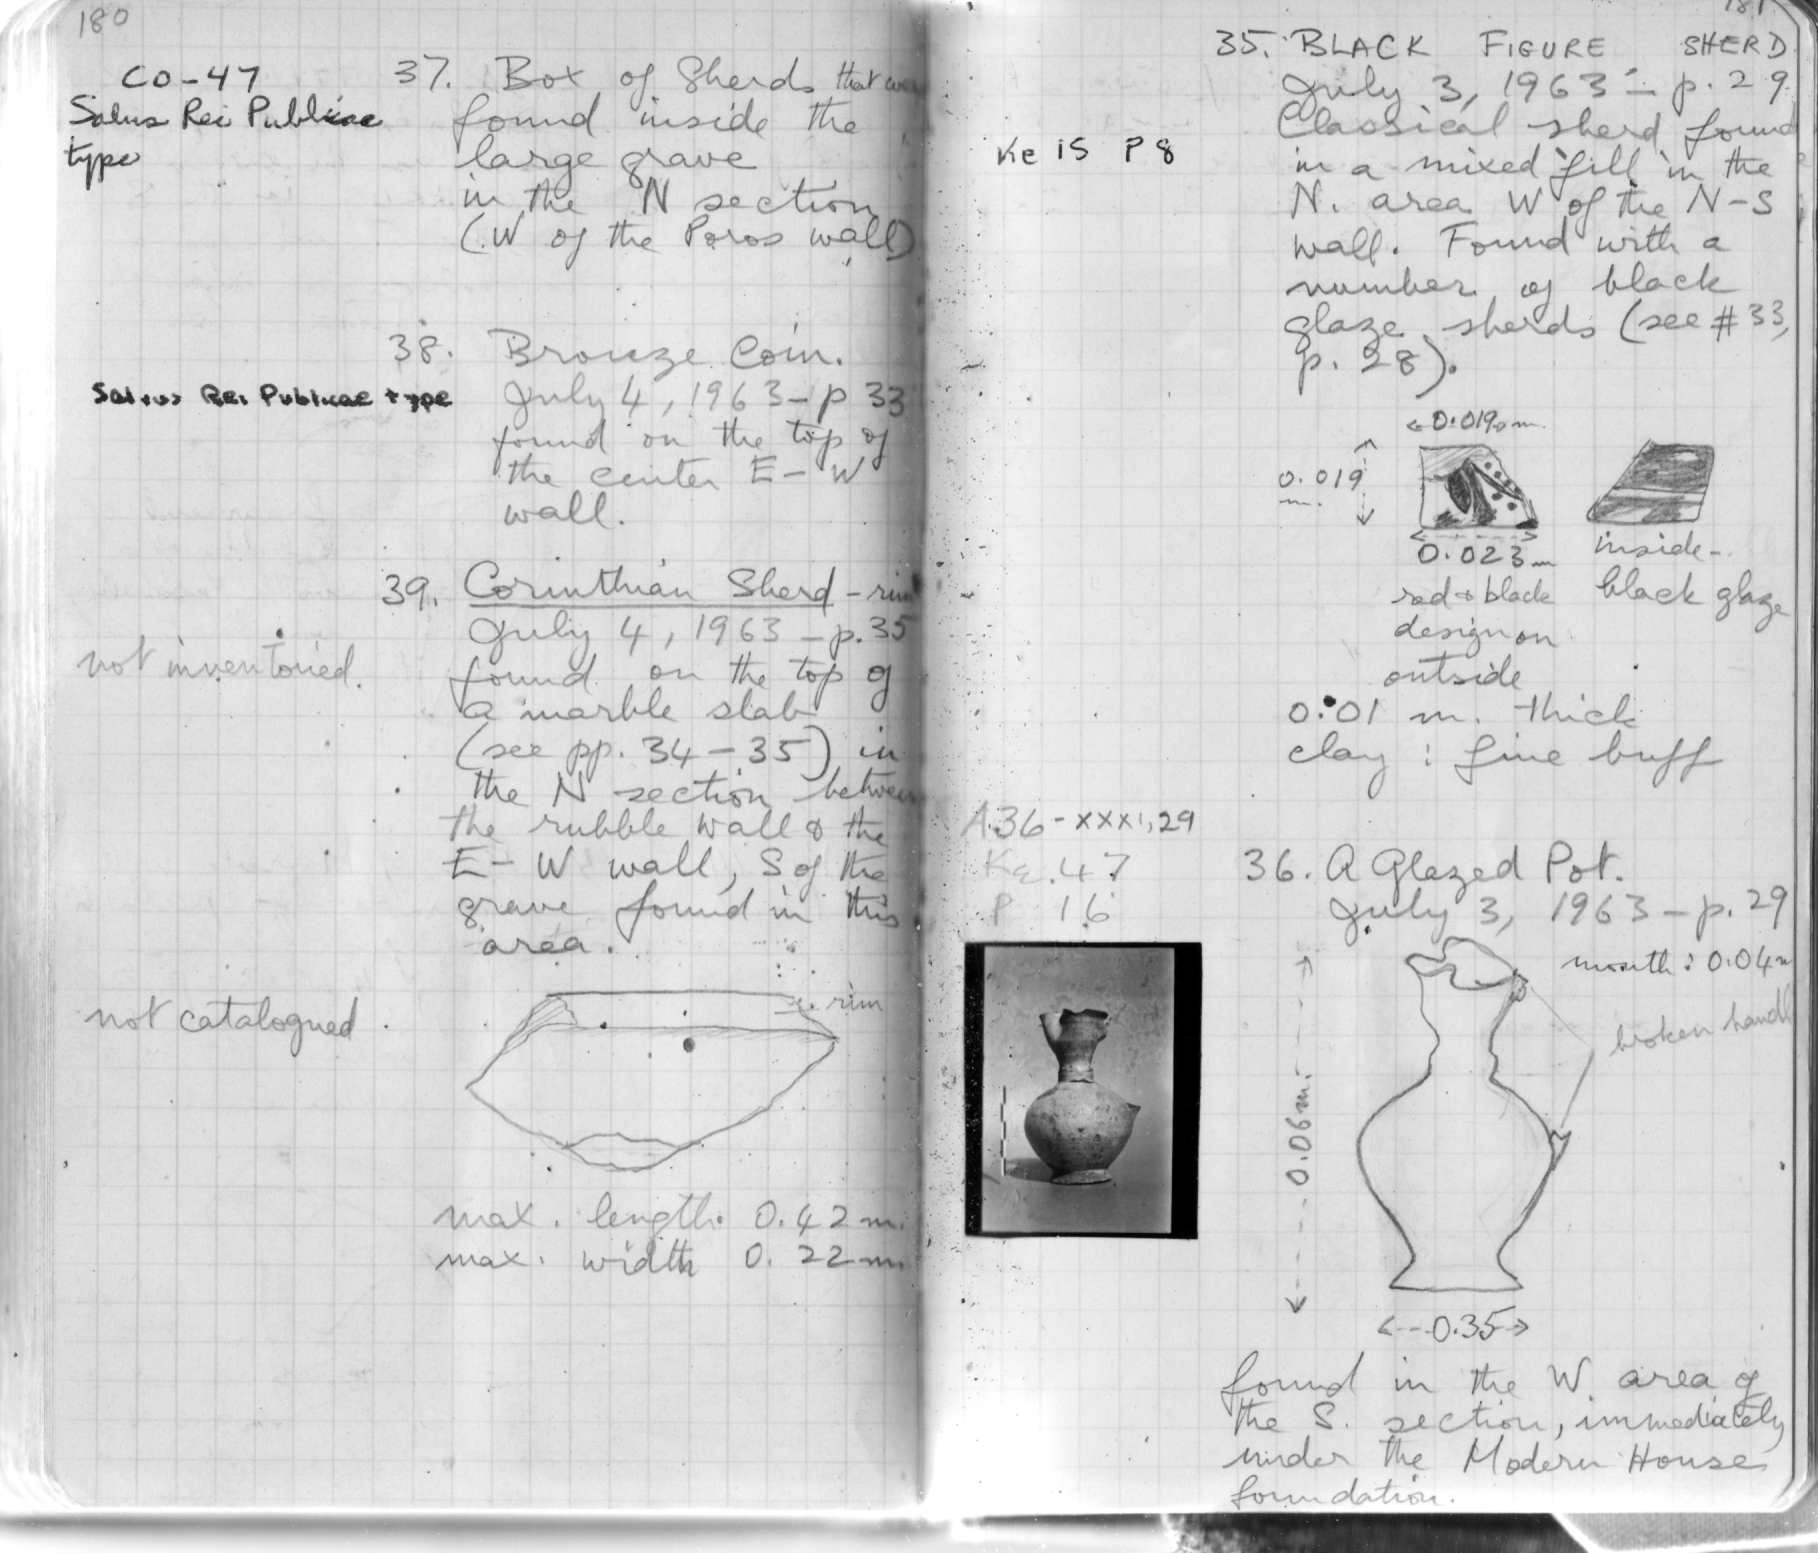 180
CO-47
Salus Rei Publicae
type
37. Box of Sherds that
found inside the
large grave
in the N section
(W of the Poros wall)
38. Bronze Coin.
Salus Rei Publicae type
July 4, 1963 – p 33
found on the top of
the center E – W
wall.
39. Corinthian Sherd – rim
July 4, 1963 – p. 35
not inventoried.
found on the top of
a marble slab
(see pp. 34 – 35) in
the N section between
the rubble wall & the
E – W wall, S of the
grave found in this
area.
not catalogued
rim
max. length. 0.42 m.
max. width 0.22 m.
181
35. BLACK FIGURE SHERD
July 3, 1963 – p. 29
Ke 15 P 8
Classical sherd found
in a mixed fill in the
N. area W of the N–S
wall. Found with a
number of black
glaze sherds (see #33,
p. 28).
0.019 m.
0.019
m.
0.023 m
inside –
black glaze
red & black
design on
outside
0.01 m. thick
clay : fine buff
A36 – XXXI, 29
Ke. 47
P 16
36. A Glazed Pot.
July 3, 1963 – p. 29
mouth : 0.04 m
broken handle
0.06 m.
0.35
found in the W. area of
the S. section, immediately
under the Modern House
foundation.